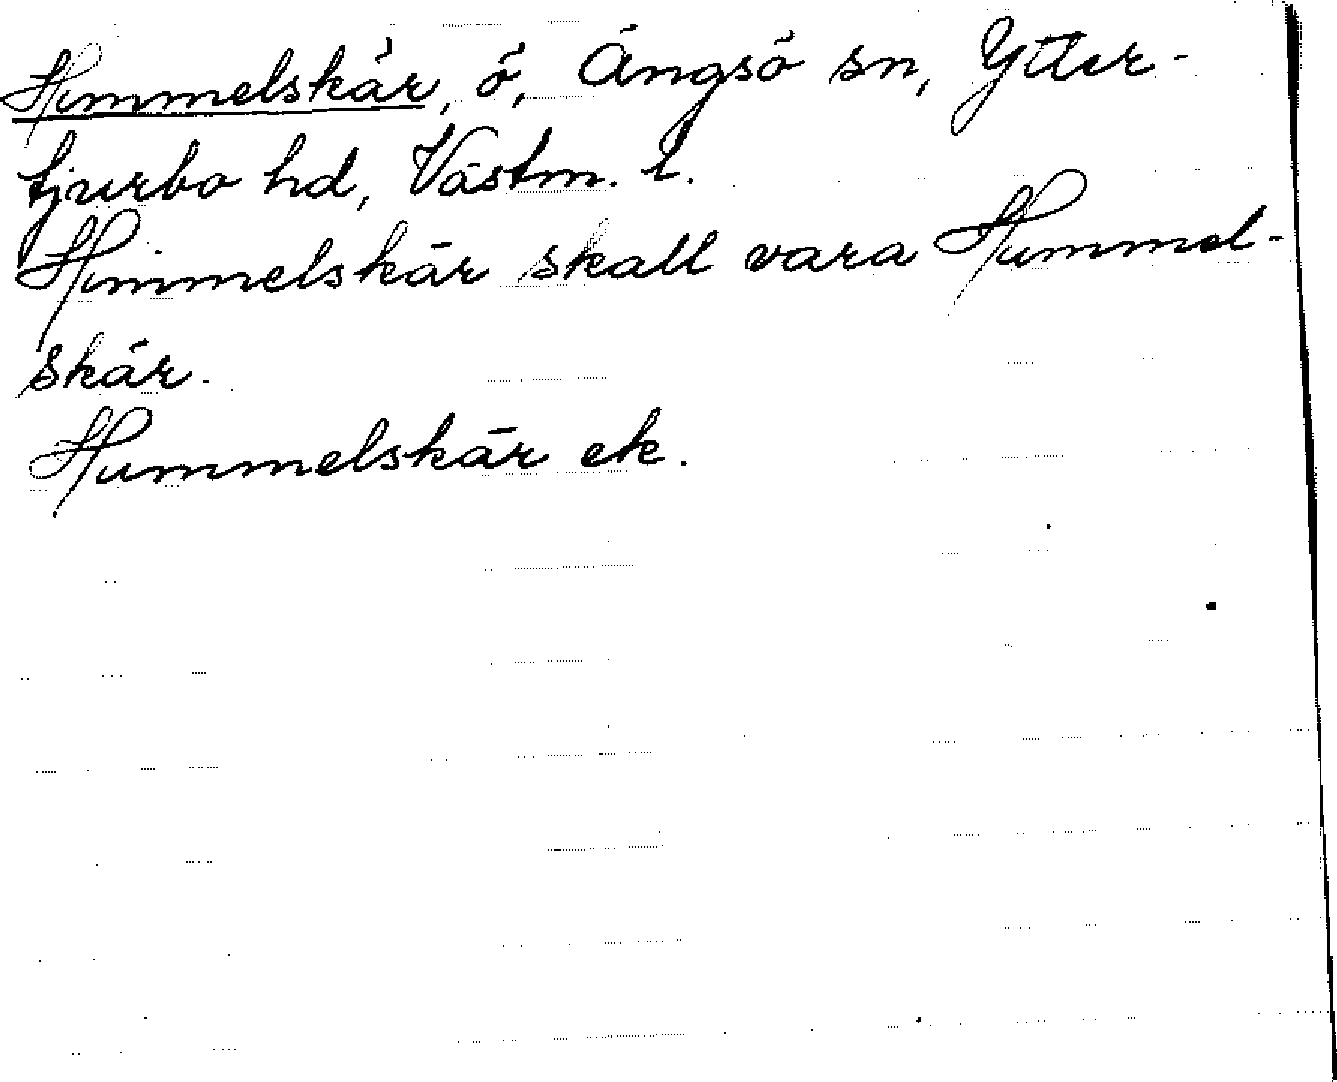 Himmelskär, ö, Ängsö sn, Ytter-
tjurbo hd, Västm. l.
Himmelskär skall vara Hummel-
skär.
Hummelskär ek.